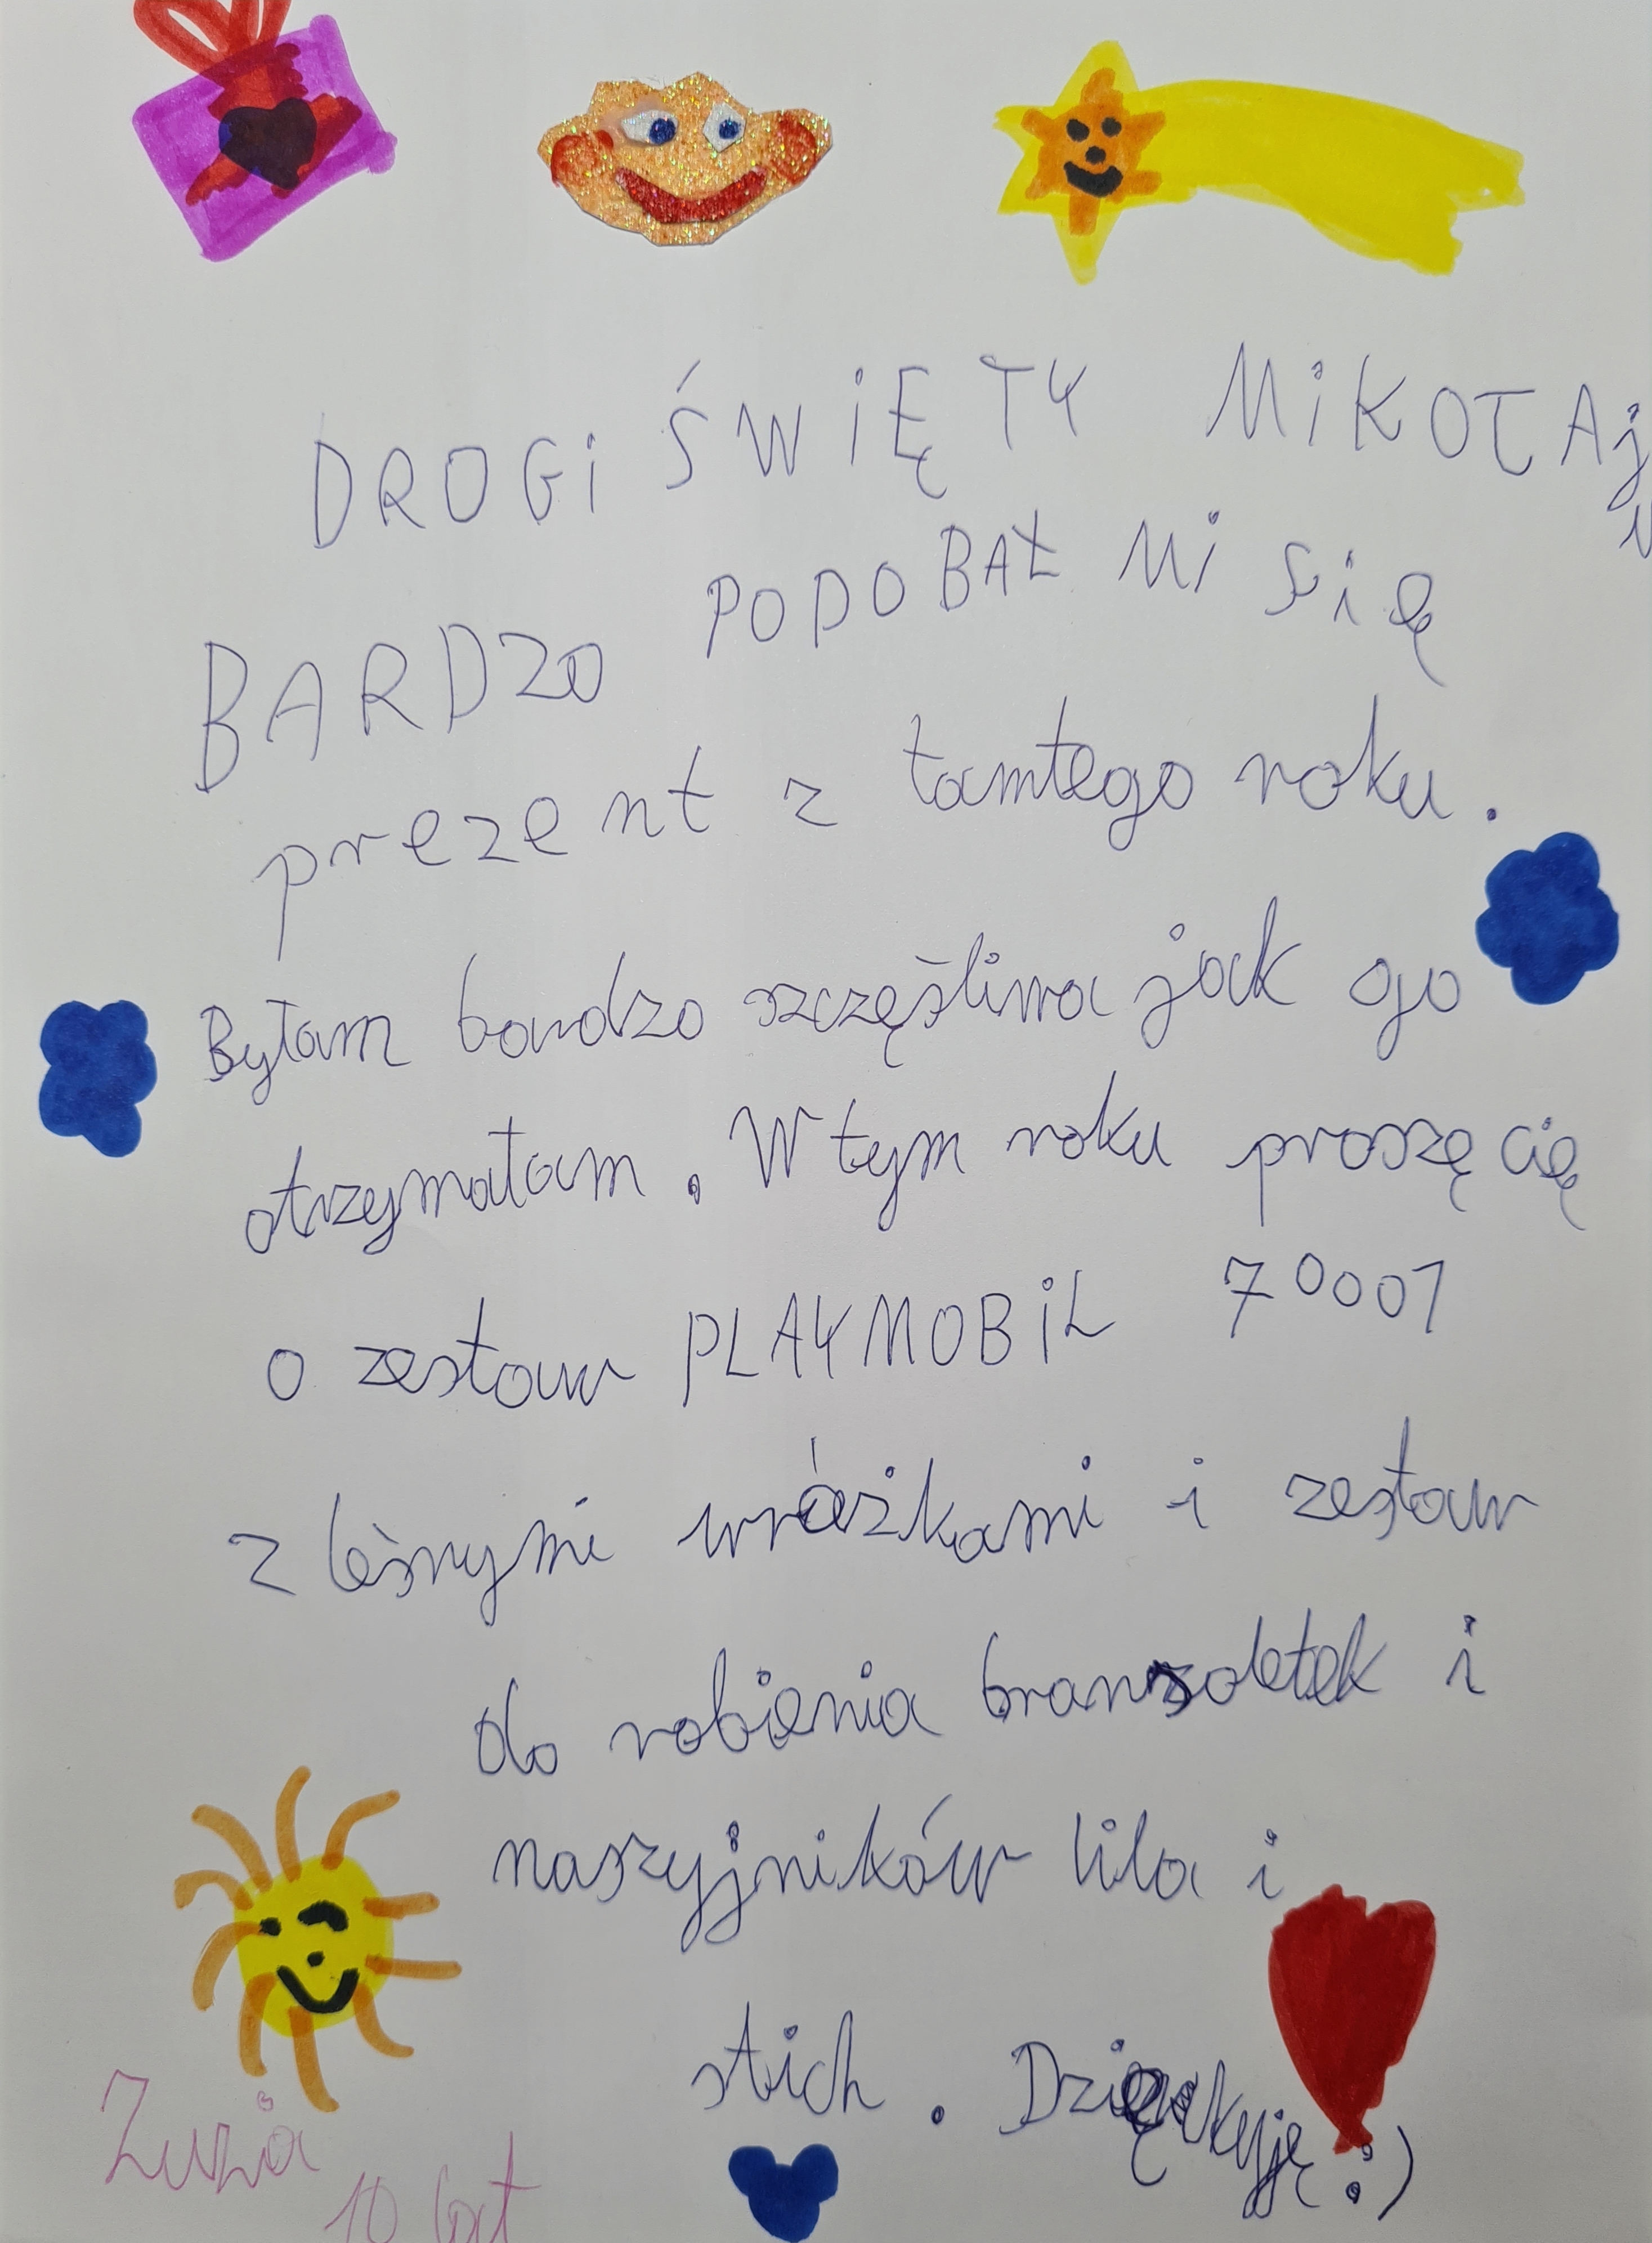 DROGi ŚWiĘTY MiKOŁAj
u
BARDZO PODOBAŁ Mi się
prezent z tamtego roku.
Byłam bardzo szczęśliwa jak go
otrzymałam. W tym roku proszę cię
o zestaw PLAYMOBiL 70001
z leśnymi wróżkami i zestaw
do robienia branzoletek i
naszyjników lilo i
stich. Dziękyję :)
Zuzia
10 lat